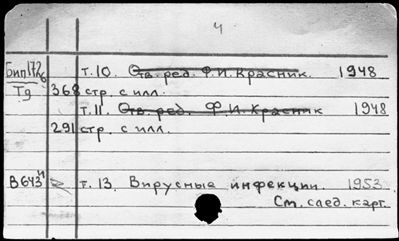 4
Бип172/6 т.10. Отв. ред. Ф.И. Красник. 1948
Тд 368 стр. с илл.
т.11. Отв. ред. Ф.И. Красник 1948
291 стр. с илл.
В643 т.13. Вирусные инфекции. 1953
См. след. карт.